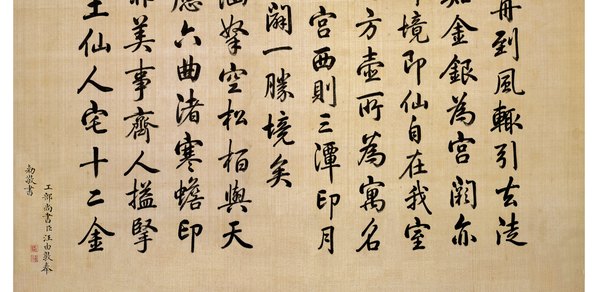 舟到風輒引去徒
知金銀為宮闕亦
即境即仙自在我室
方壺所為寓名
宮西則三潭印月
闢一勝境矣
涵挐空松柏與天
應六曲渚寒蟾印
非美事齊人搤掔
土仙人宅十二金
工部尚書臣汪由敦奉
勅敬書